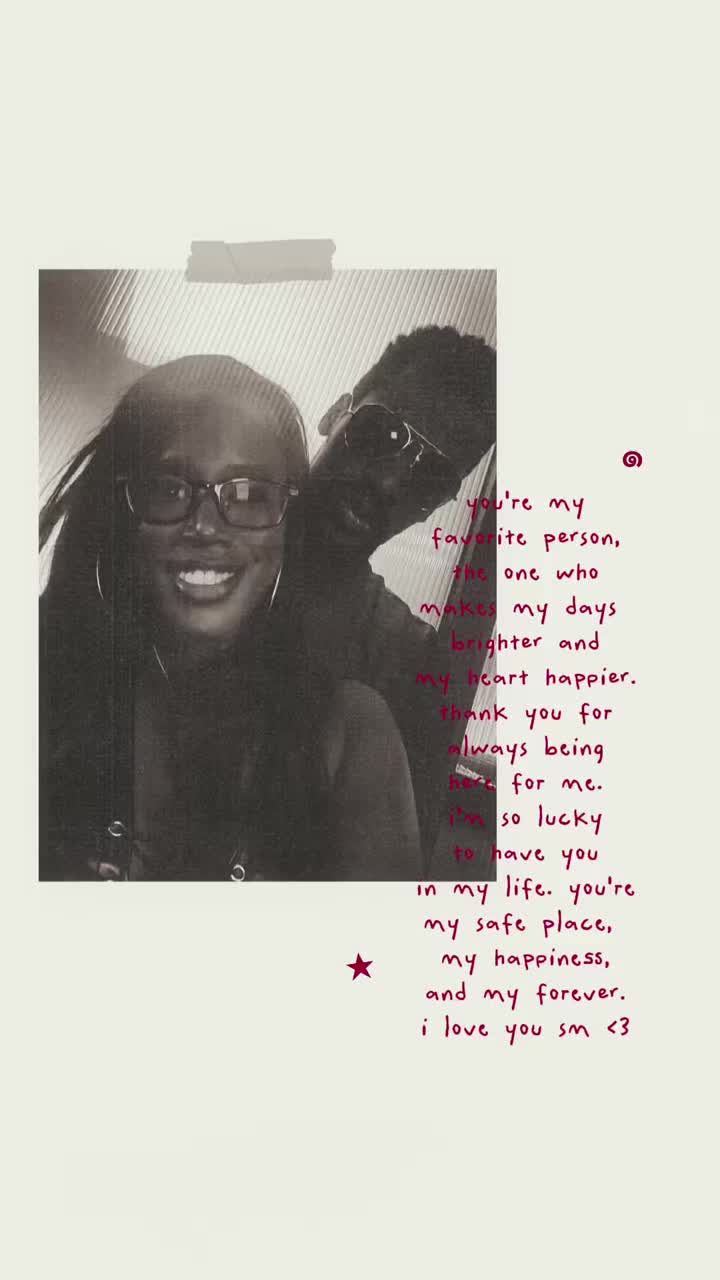 you're my
favorite person,
the one who
makes my days
brighter and
my heart happier.
thank you for
always being
here for me.
i'm so lucky
to have you
in my life. you're
my safe place,
my happiness,
and my forever.
i love you sm <3